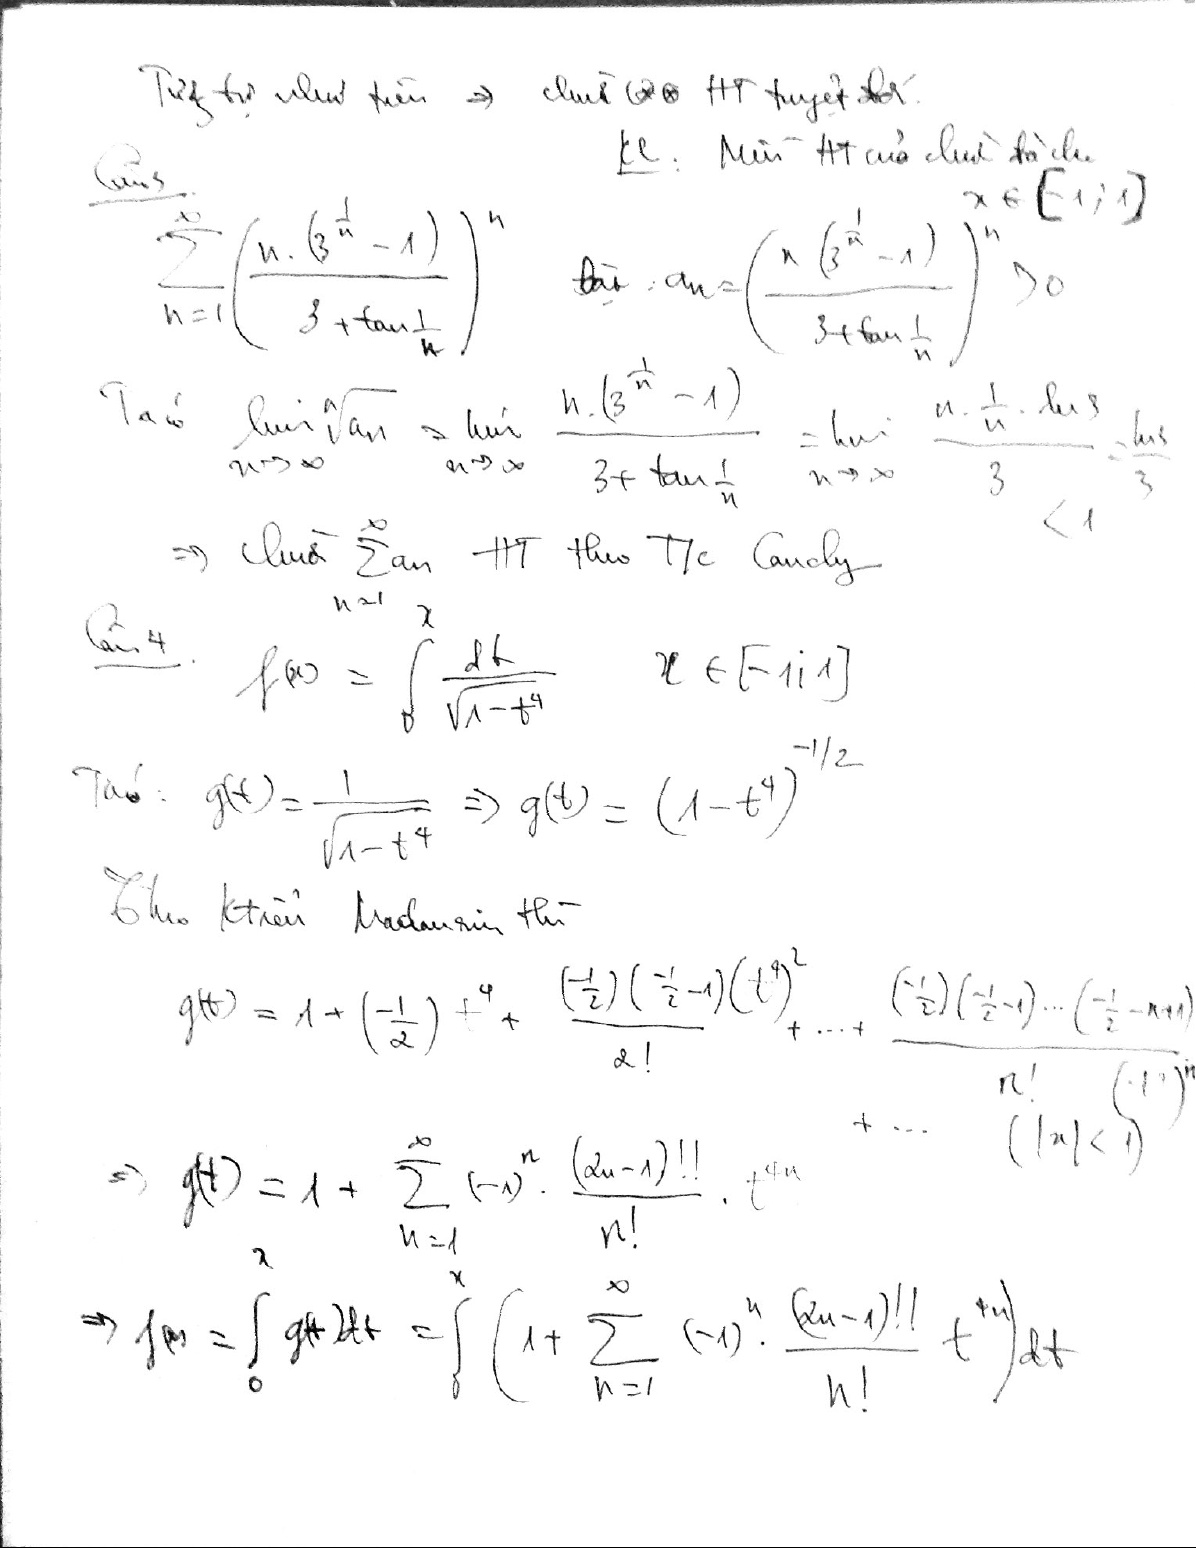 Tương tự như trên => chuỗi HT tuyệt đối.
KL: Miền HT của chuỗi đã cho
x ∈ [-1; 1]
Câu 3
∑_{n=1}^{∞} ( n.(3^{1/n} - 1) / (3 + tan 1/n) )^n đặt: an = ( n(3^{1/n} - 1) / (3 + tan 1/n) )^n > 0
Ta có lim_{n→∞} ⁿ√an = lim_{n→∞} n.(3^{1/n} - 1) / (3 + tan 1/n) = lim_{n→∞} (n. 1/n . ln3) / 3 = ln3 / 3
< 1
=> chuỗi ∑_{n=1}^{∞} an HT theo T/c Cauchy
Câu 4. f(x) = ∫_0^x dt / √(1-t^4) x ∈ [-1; 1]
Ta có: g(t) = 1 / √(1-t^4) => g(t) = (1-t^4)^{-1/2}
Theo ktriển Maclaurin thì
g(t) = 1 + (-1/2) t^4 + (-1/2)(-1/2 -1)(t^4)^2 / 2! + ... + (-1/2)(-1/2 -1)...(-1/2 -n+1) / n!
+ ... (|x| < 1)
=> g(t) = 1 + ∑_{n=1}^{∞} (-1)^n . (2n-1)!! / n! . t^{4n}
=> f(x) = ∫_0^x g(t)dt = ∫_0^x (1 + ∑_{n=1}^{∞} (-1)^n . (2n-1)!! / n! t^{4n}) dt